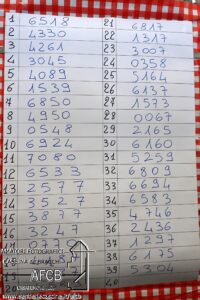 1 6518
2 4330
3 4261
4 3045
5 4089
6 1539
7 6850
8 4950
9 0548
10 6924
11 7080
12 6533
13 2577
14 3527
15 3877
16 3247
21 6817
22 1317
23 3007
24 0358
25 5164
26 6137
27 1573
28 0067
29 2165
30 6160
31 5259
32 6809
33 6694
34 6583
35 4746
36 2436
37 1297
38 6175
39 5304
40
AFCB